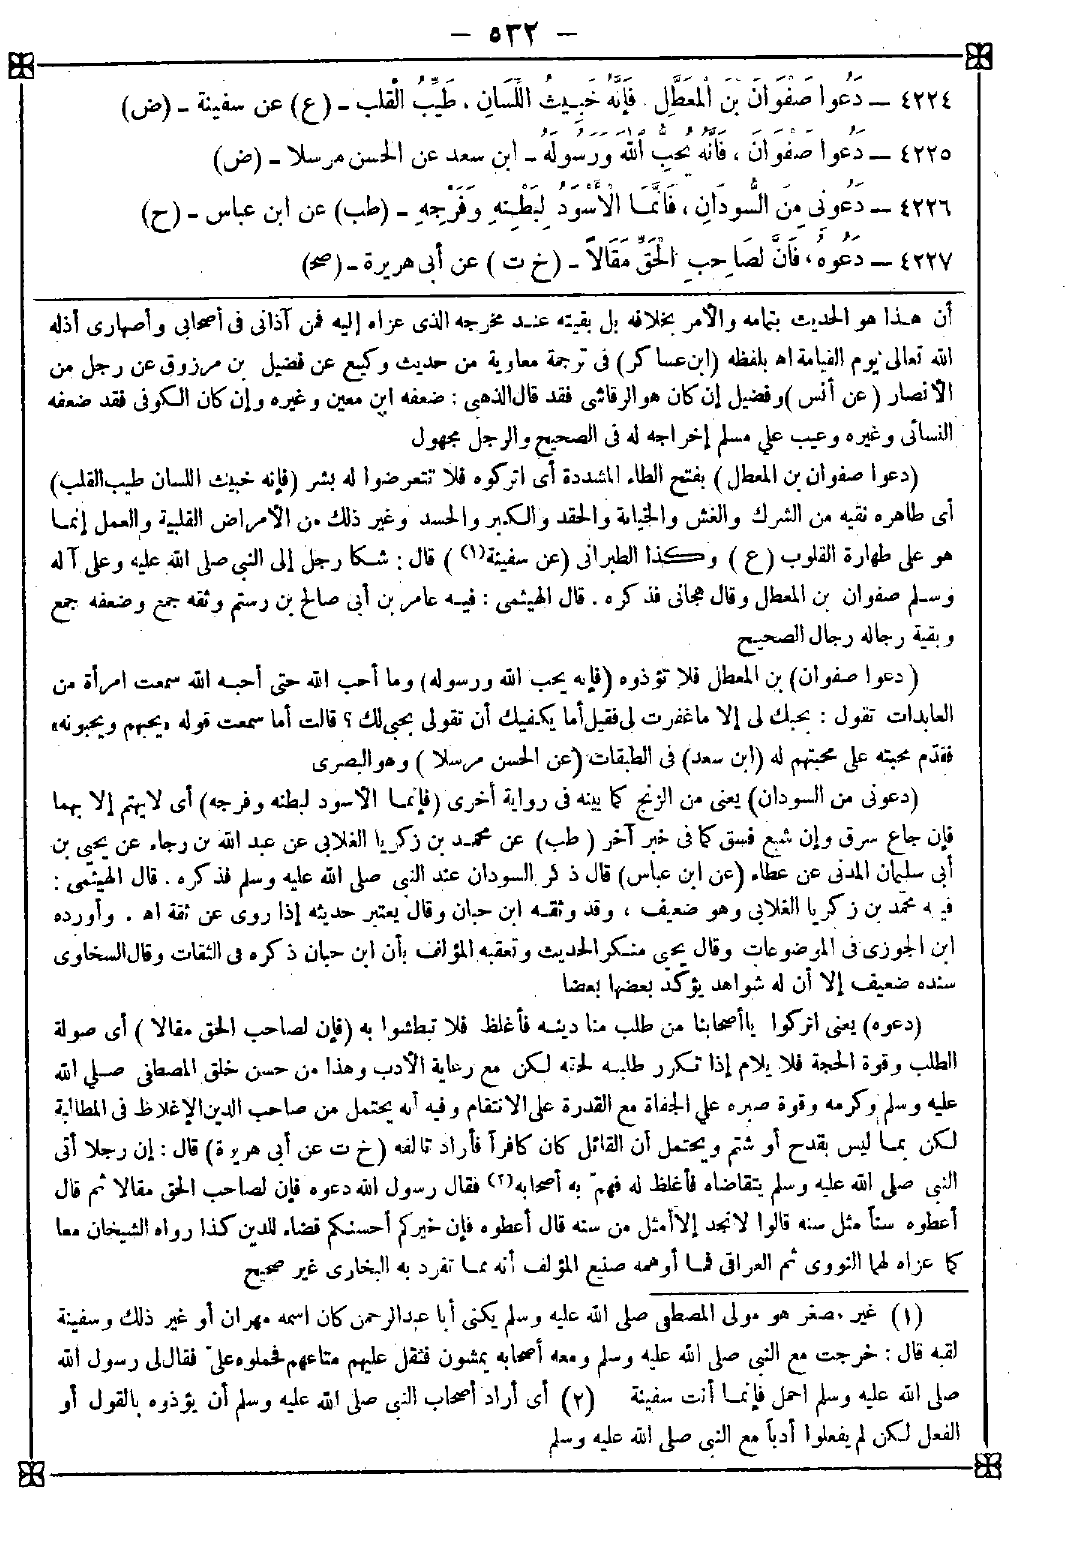 — ٥٣٢ —
٤٢٢٤ — دَعُوا صَفْوَانَ بْنَ الْمُعَطَّلِ، فَإِنَّهُ خَبِيثُ اللِّسَانِ، طَيِّبُ الْقَلْبِ - (ع) عن سفينة - (ض)
٤٢٢٥ — دَعُوا صَفْوَانَ، فَإِنَّهُ يُحِبُّ اللهَ وَرَسُولَهُ - ابن سعد عن الحسن مرسلا - (ض)
٤٢٢٦ — دَعُونِي مِنَ السُّودَانِ، فَإِنَّمَا الْأَسْوَدُ لِبَطْنِهِ وَفَرْجِهِ - (طب) عن ابن عباس - (ح)
٤٢٢٧ — دَعُوهُ، فَإِنَّ لِصَاحِبِ الْحَقِّ مَقَالاً - (خ ت) عن أبي هريرة - (صح)
أن هذا هو الحديث بتمامه والأمر بخلافه بل بقيته عند مخرجه الذى عزاه إليه فمن آذانى فى أصحابي وأصهارى أذله
الله تعالى يوم القيامة اه بلفظه (ابن عساكر) فى ترجمة معاوية من حديث وكيع عن فضيل بن مرزوق عن رجل من
الأنصار (عن أنس) وفضيل إن كان هو الرقاشى فقد قال الذهبى: ضعفه ابن معين وغيره وإن كان الكوفى فقد ضعفه
النسائى وغيره وعيب على مسلم إخراجه له فى الصحيح والرجل مجهول
(دعوا صفوان بن المعطل) بفتح الطاء المشددة أى اتركوه فلا تتعرضوا له بشر (فإنه خبيث اللسان طيب القلب)
أى طاهره نقيه من الشرك والغش والخيانة والحقد والكبر والحسد وغير ذلك من الأمراض القلبية والعمل إنما
هو على طهارة القلوب (ع) وكذا الطبرانى (عن سفينة(١)) قال: شكا رجل إلى النبي صلى الله عليه وعلى آله
وسلم صفوان بن المعطل وقال هجانى فذكره. قال الهيثمى: فيه عامر بن أبى صالح بن رستم وثقه جمع وضعفه جمع
وبقية رجاله رجال الصحيح
(دعوا صفوان) بن المعطل فلا تؤذوه (فإنه يحب الله ورسوله) وما أحب الله حتى أحبه الله سمعت امرأة من
العابدات تقول: بحبك لى إلا ماغفرت لى فقيل أما يكفيك أن تقولى بحبى لك؟ قالت أما سمعت قوله «يحبهم ويحبونه»
فقدّم محبته على محبتهم له (ابن سعد) فى الطبقات (عن الحسن مرسلا) وهو البصرى
(دعونى من السودان) يعنى من الزنج كما بينه فى رواية أخرى (فإنما الأسود لبطنه وفرجه) أى لايهتم إلا بهما
فإن جاع سرق وإن شبع فسق كما فى خبر آخر (طب) عن محمد بن زكريا الغلابى عن عبد الله بن رجاء عن يحيى بن
أبى سليمان المدنى عن عطاء (عن ابن عباس) قال ذكر السودان عند النبى صلى الله عليه وسلم فذكره. قال الهيثمى:
فيه محمّد بن زكريا الغلابى وهو ضعيف، وقد وثقه ابن حبان وقال يعتبر حديثه إذا روى عن ثقة اه. وأورده
ابن الجوزى فى الموضوعات وقال يحيى منكر الحديث وتعقبه المؤلف بأن ابن حبان ذكره فى الثقات وقال السخاوى
سنده ضعيف إلا أن له شواهد يؤكد بعضها بعضا
(دعوه) يعنى اتركوا ياأصحابنا من طلب منا دينه فأغلظ فلا تبطشوا به (فإن لصاحب الحق مقالا) أى صولة
الطلب وقوة الحجة فلا يلام إذا تكرر طلبه لحقه لكن مع رعاية الأدب وهذا من حسن خلق المصطفى صلى الله
عليه وسلم وكرمه وقوة صبره على الجفاة مع القدرة على الانتقام وفيه أنه يحتمل من صاحب الدين الإغلاظ فى المطالبة
لكن بما ليس بقدح أو شتم ويحتمل أن القائل كان كافراً فأراد تالفه (خ ت عن أبى هريرة) قال: إن رجلا أتى
النبى صلى الله عليه وسلم يتقاضاه فأغلظ له فهمّ به أصحابه(٢) فقال رسول الله دعوه فإن لصاحب الحق مقالا ثم قال
أعطوه سناً مثل سنه قالوا لانجد إلا أمثل من سنه قال أعطوه فإن خيركم أحسنكم قضاء للدين كذا رواه الشيخان معا
كما عزاه لهما النووى ثم العراقى فما أوهمه صنيع المؤلف أنه مما تفرد به البخارى غير صحيح
(١) غير مصغر هو مولى المصطفى صلى الله عليه وسلم يكنى أبا عبدالرحمن كان اسمه مهران أو غير ذلك وسفينة
لقبه قال: خرجت مع النبى صلى الله عليه وسلم ومعه أصحابه يمشون فثقل عليهم متاعهم فحملوه علىّ فقال لى رسول الله
صلى الله عليه وسلم احمل فإنما أنت سفينة (٢) أى أراد أصحاب النبى صلى الله عليه وسلم أن يؤذوه بالقول أو
الفعل لكن لم يفعلوا أدباً مع النبى صلى الله عليه وسلم